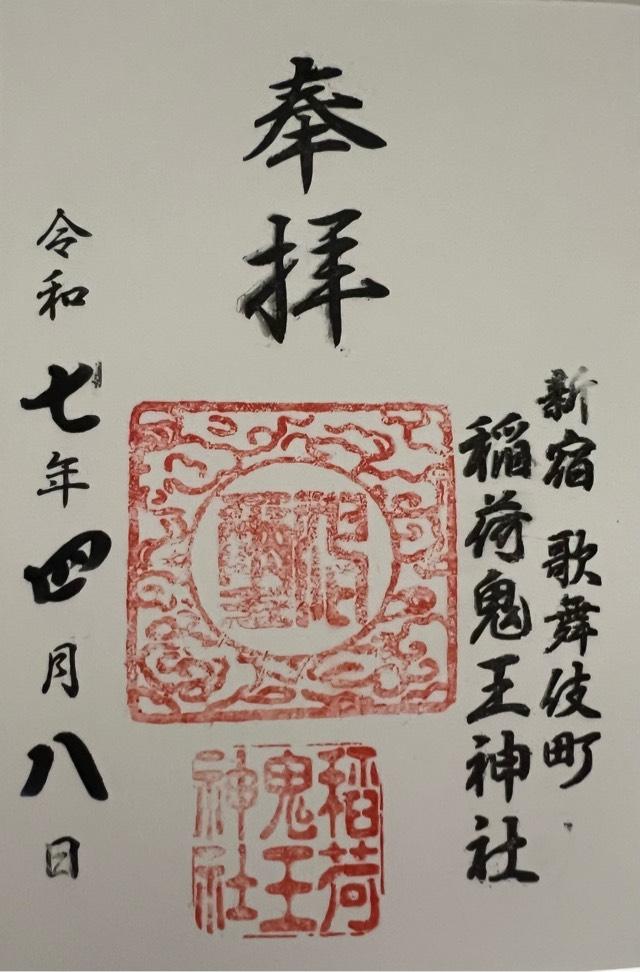 新宿 歌舞伎町
稲荷鬼王神社
奉拝
稲荷
鬼王
神社
令和七年四月八日